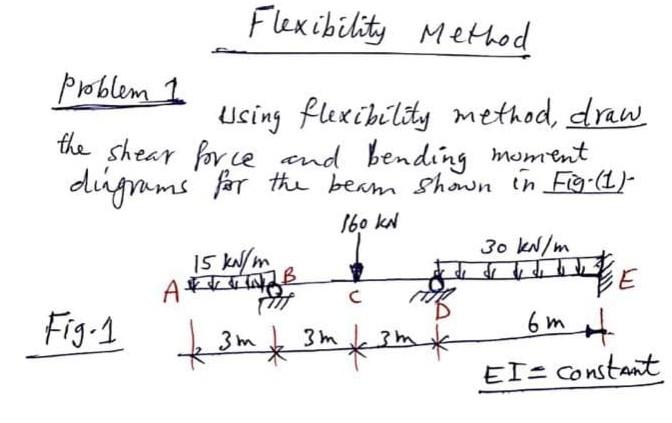 Flexibility Method
Problem 1
Using flexibility method, draw
the shear force and bending moment
diagrams for the beam shown in Fig-(1)-
160 kN
15 kN/m
30 kN/m
A
B
C
D
E
Fig-1
3m
3m
3m
6m
EI = constant